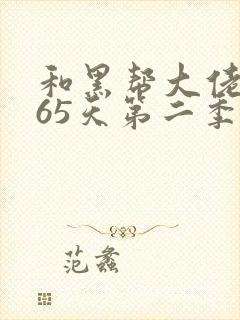 和黑帮大佬
65天第二季
范蠡